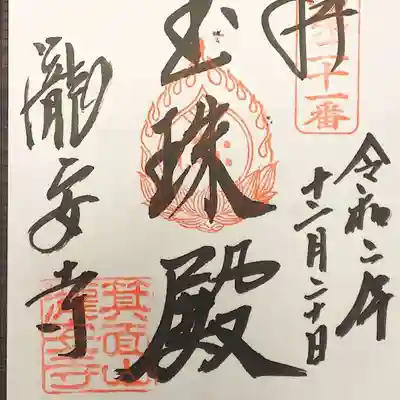 十一番
令和二年
十二月二十日
玉珠殿
瀧安寺
箕面山
瀧安寺